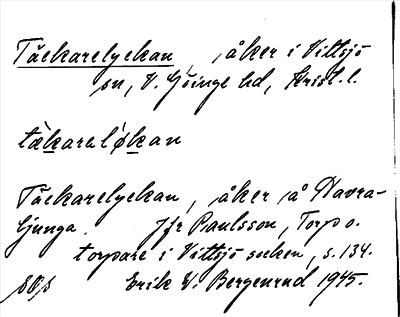 Täckarelyckan, åker i Vittsjö
sn, V. Göinge hd, Krist. l.
tä̀karalỳkan
Täckarelyckan, åker på Havra-
ljunga. Jfr Paulsson, Torp o.
torpare i Vittsjö socken, s. 134.
Erik V. Bergenrud 1945.